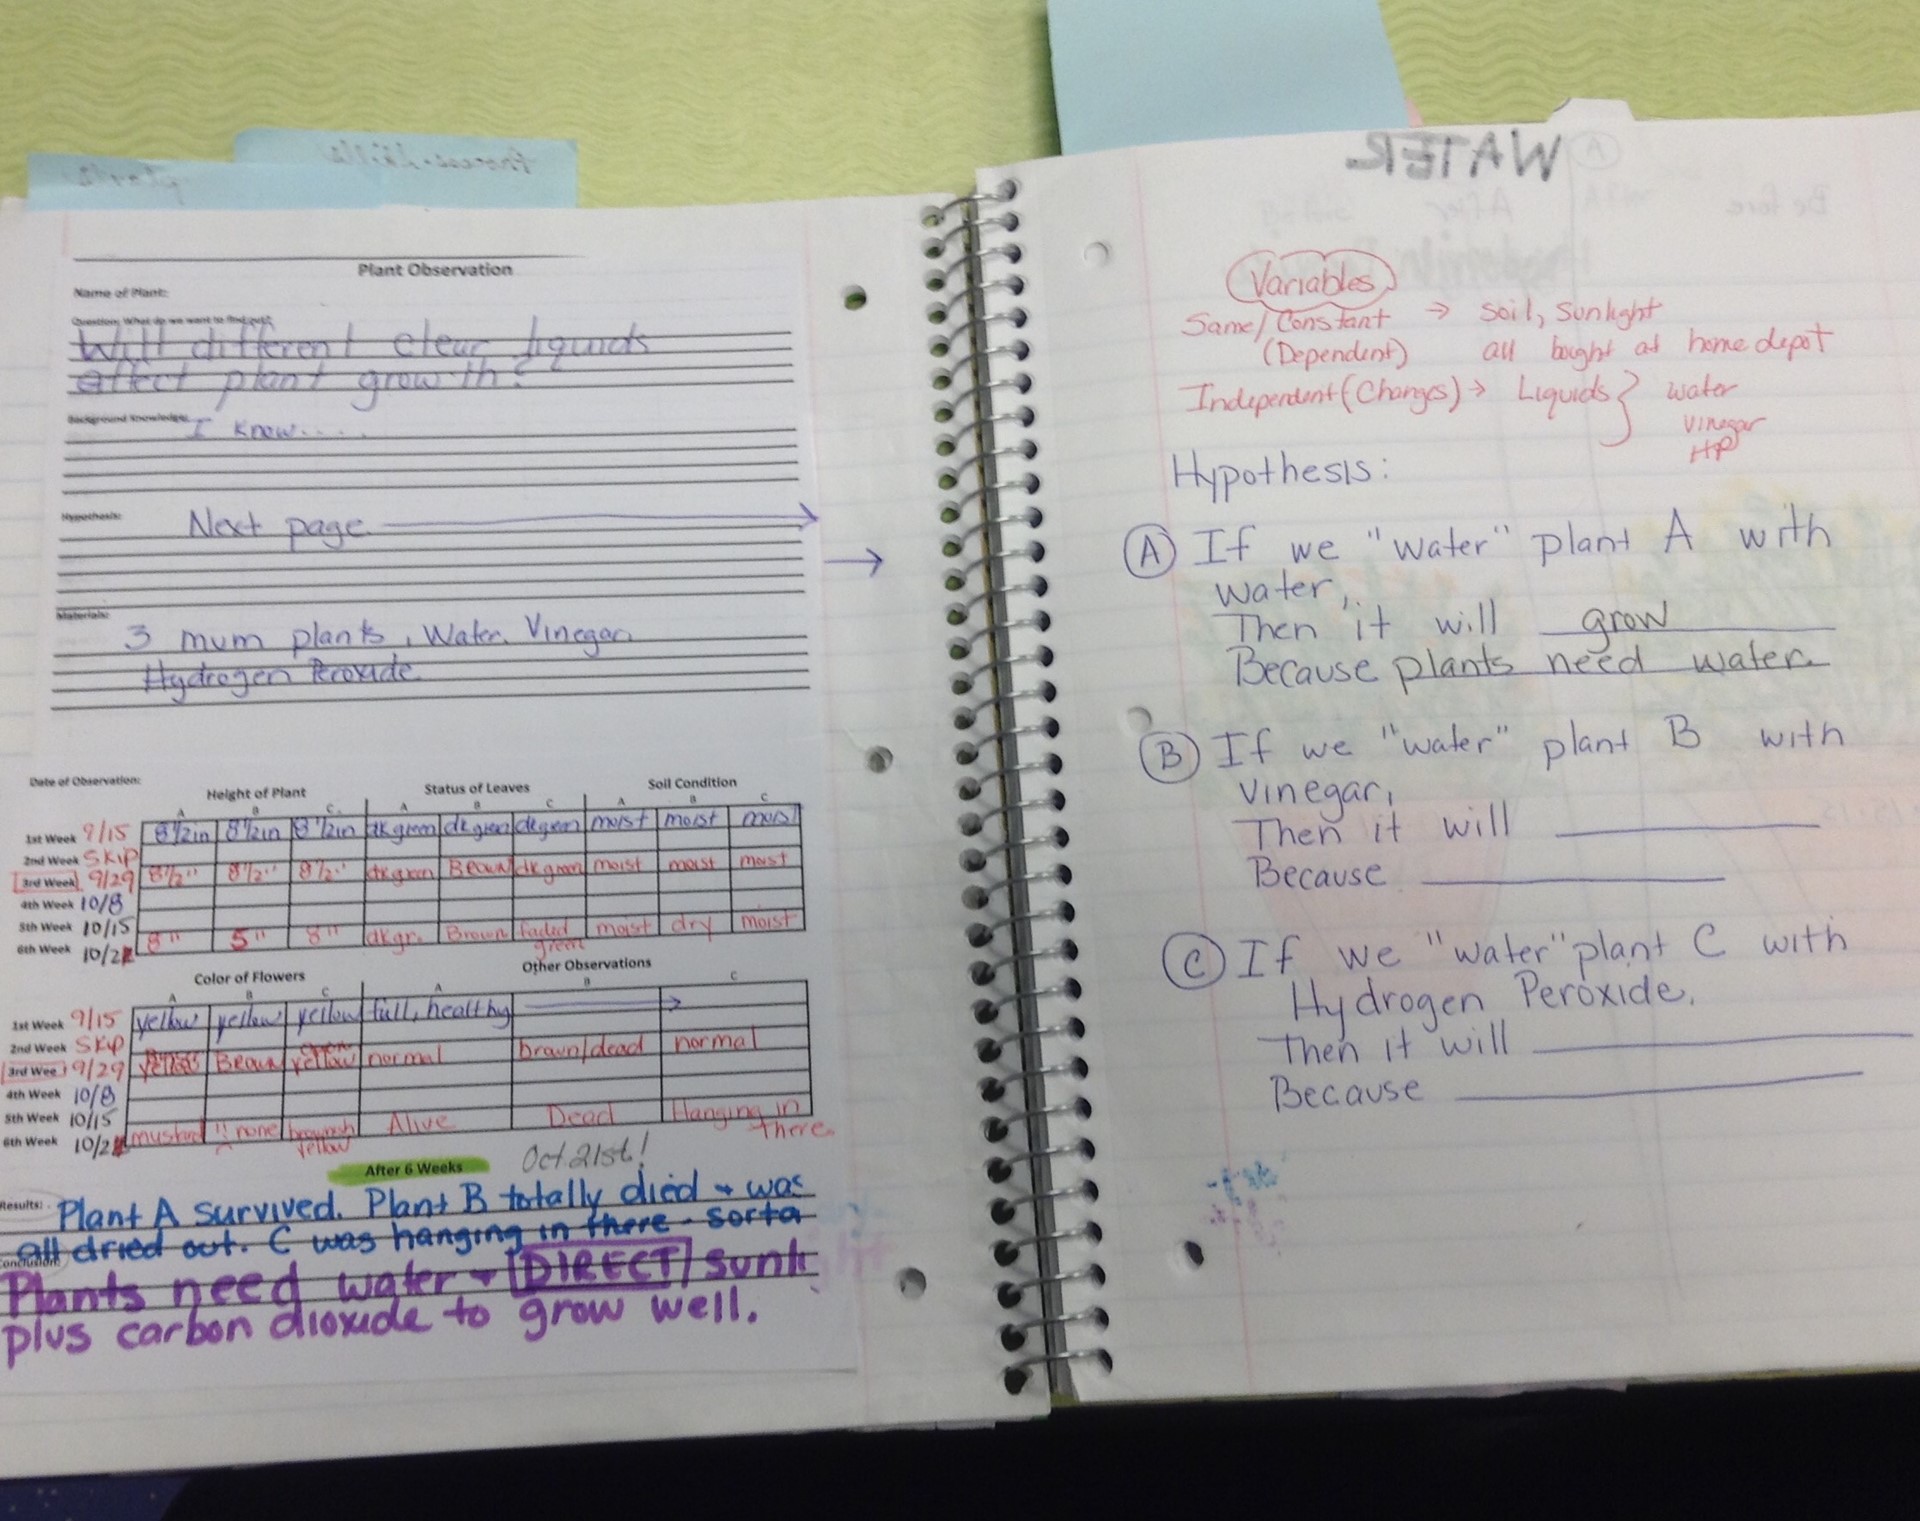 Plant Observation
Name of Plant:
Question: What do we want to find out?
Will different clear liquids
affect plant growth?
Background Knowledge:
I know....
Hypothesis:
Next page
Materials:
3 mum plants, Water, Vinegar
Hydrogen Peroxide
Date of Observation:
Height of Plant Status of Leaves Soil Condition
A B C A B C A B C
1st Week 9/15 8 1/2in 8 1/2in 8 1/2in dk green dk green dk green moist moist moist
2nd Week Skip
3rd Week 9/29 8 1/2" 8 1/2" 8 1/2" dk green Brown dk green moist moist moist
4th Week 10/8
5th Week 10/15
6th Week 10/21 8" 5" 8" dk gr. Brown faded green moist dry moist
Color of Flowers Other Observations
A B C A B C
1st Week 9/15 yellow yellow yellow full, healthy
2nd Week Skip
3rd Wee 9/29 yellow Brown yellow normal brown/dead normal
4th Week 10/8
5th Week 10/15
6th Week 10/21 mustard none brownish yellow Alive Dead Hanging in there
After 6 Weeks Oct 21st!
Results: Plant A survived. Plant B totally died + was
all dried out. C was hanging in there - sorta
Conclusion:
Plants need water + DIRECT sunli
plus carbon dioxide to grow well.
WATER
Variables
Same/Constant → soil, sunlight
(Dependent) all bought at home depot
Independent (Changes) → Liquids} water
vinegar
HP
Hypothesis:
A If we "water" plant A with
water,
Then it will grow
Because plants need water.
B If we "water" plant B with
vinegar,
Then it will
Because
C If we "water" plant C with
Hydrogen Peroxide,
Then it will
Because